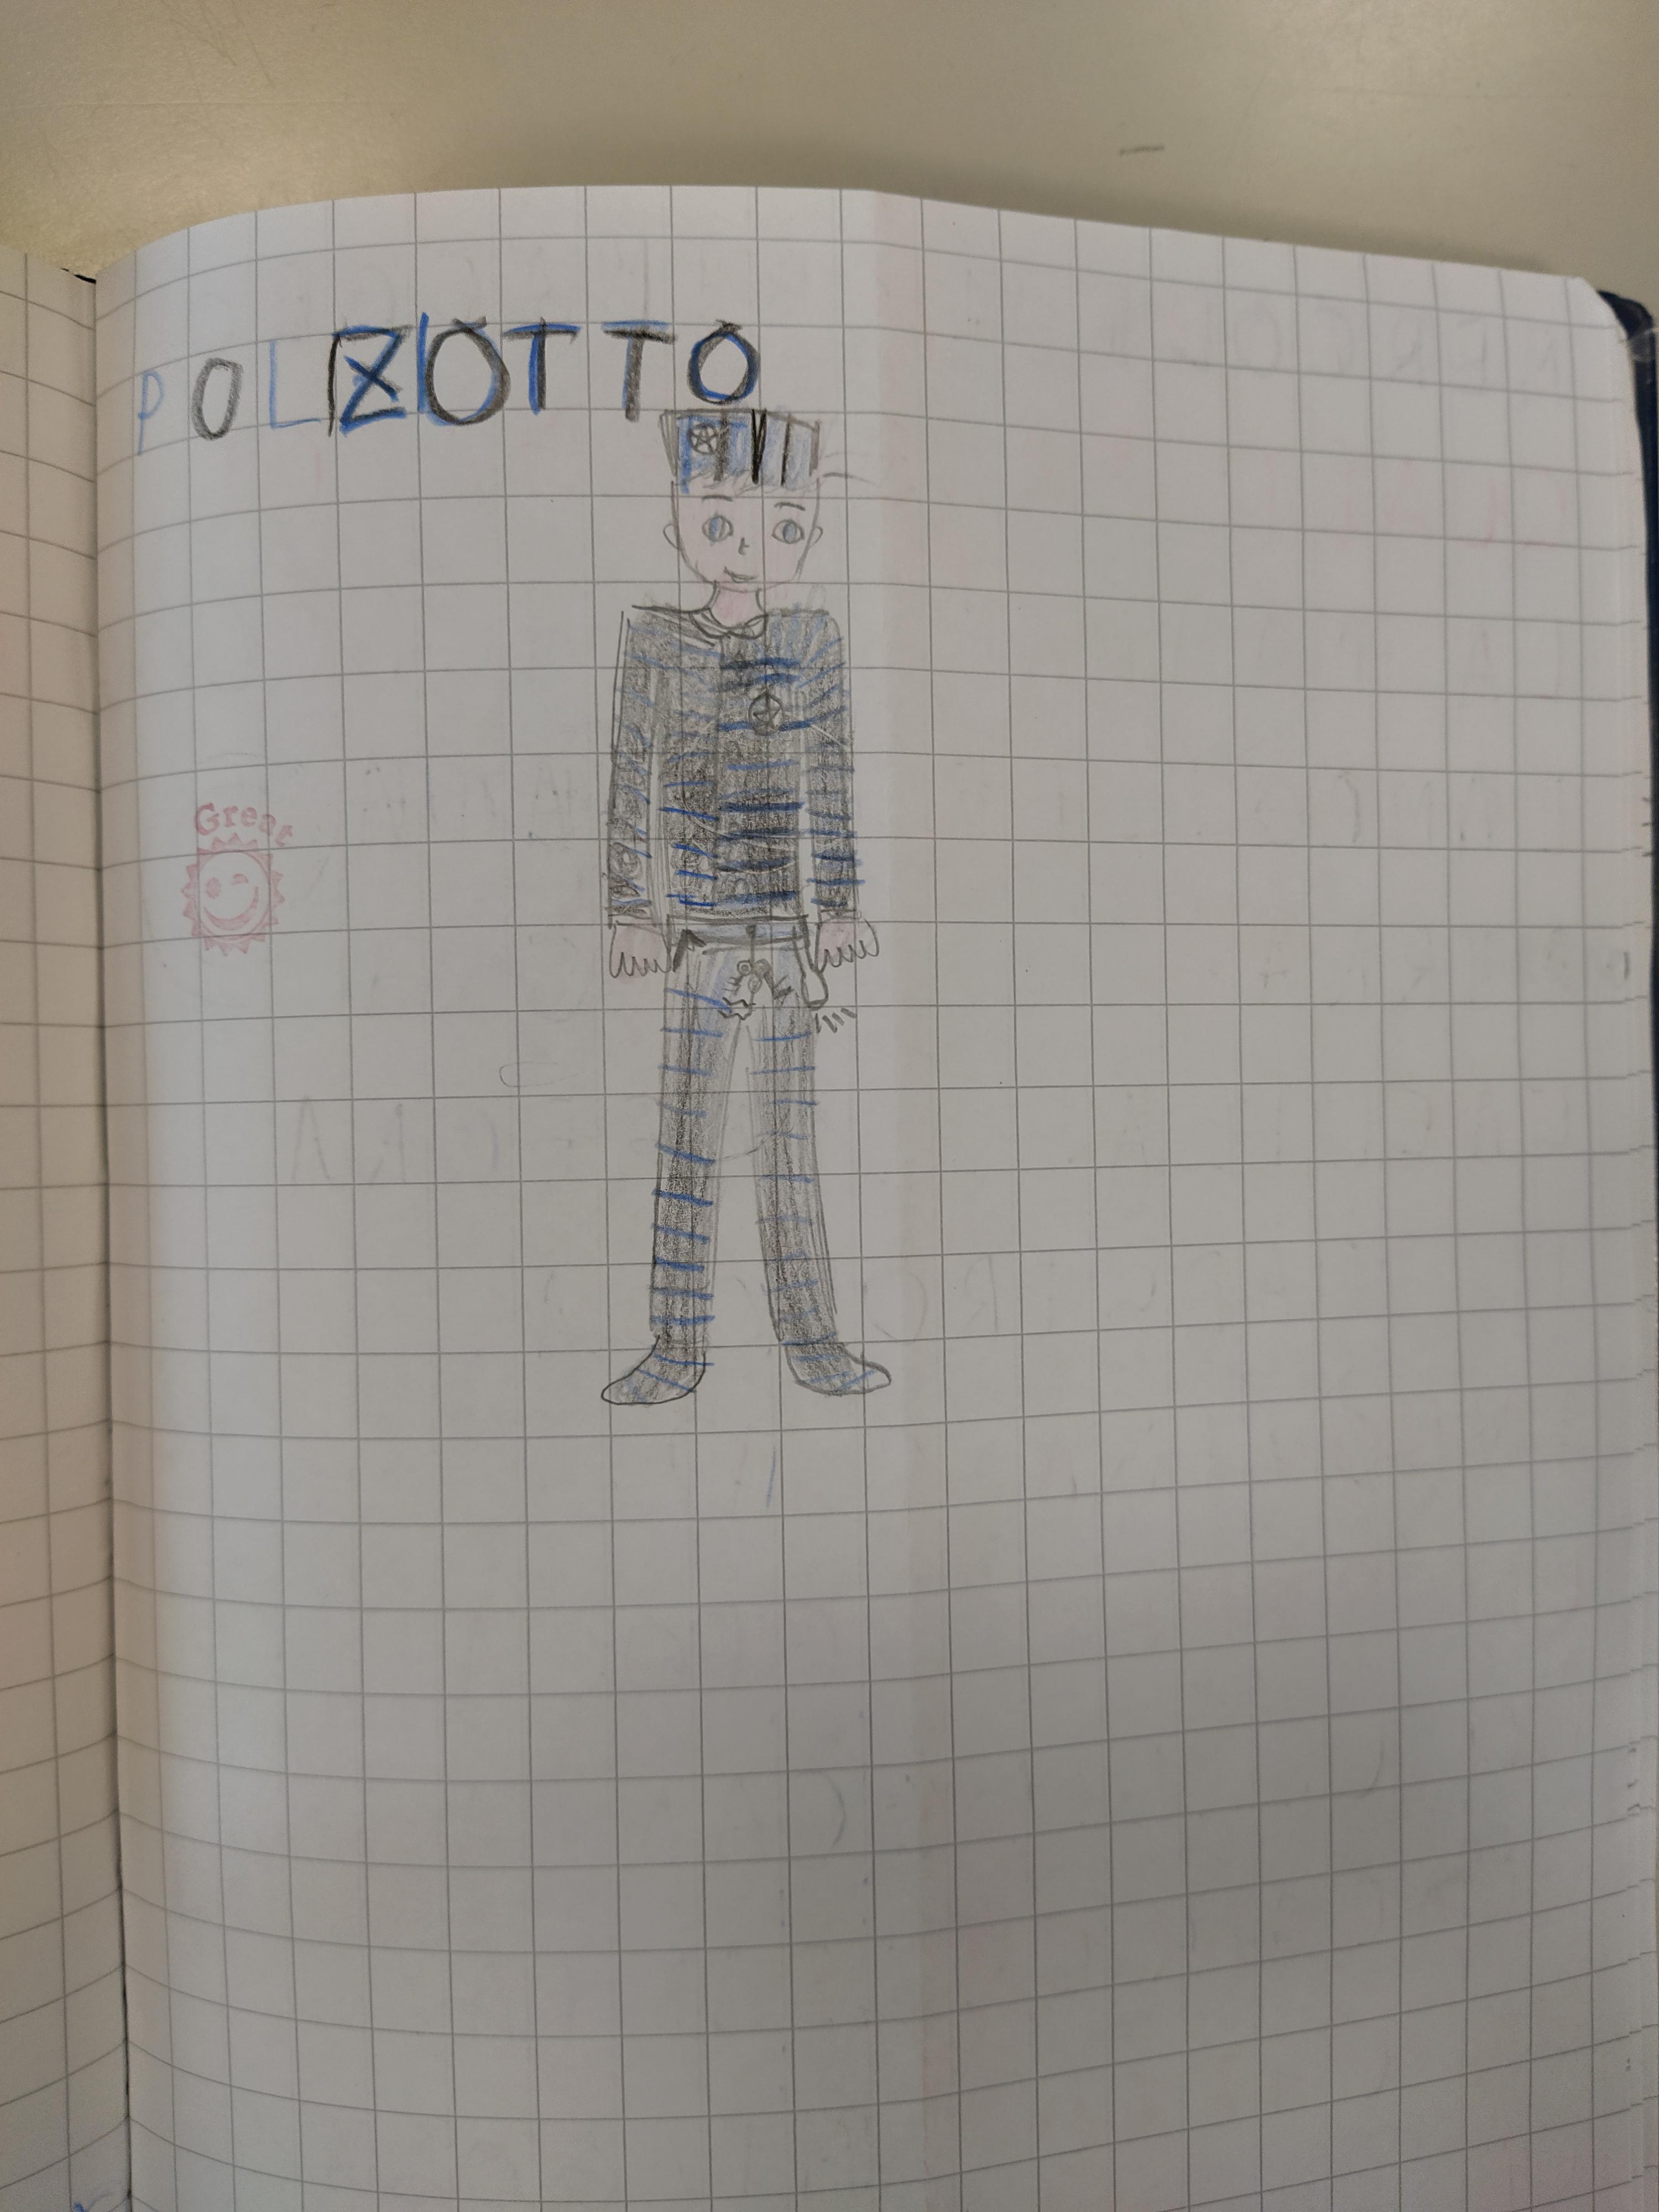 POLIZIOTTO
Great